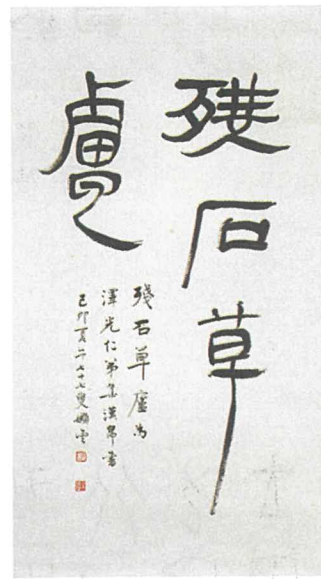 殘石草
廬
殘石草廬為
澤光仁弟集漢帛書
己卯夏七十七叟